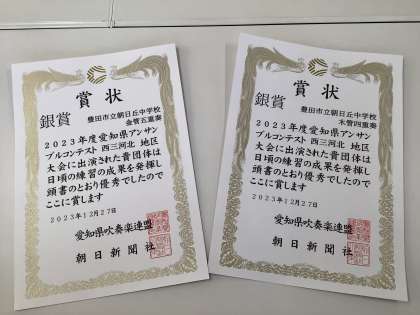 賞状
銀賞
豊田市立朝日丘中学校
金管五重奏
2023年度愛知県アンサン
ブルコンテスト 西三河北 地区
大会に出演された貴団体は
日頃の練習の成果を発揮し
頭書のとおり優秀でしたので
ここに賞します
2023年12月27日
愛知県吹奏楽連盟
朝日新聞社
賞状
銀賞
豊田市立朝日丘中学校
木管四重奏
2023年度愛知県アンサン
ブルコンテスト 西三河北 地区
大会に出演された貴団体は
日頃の練習の成果を発揮し
頭書のとおり優秀でしたので
ここに賞します
2023年12月27日
愛知県吹奏楽連盟
朝日新聞社